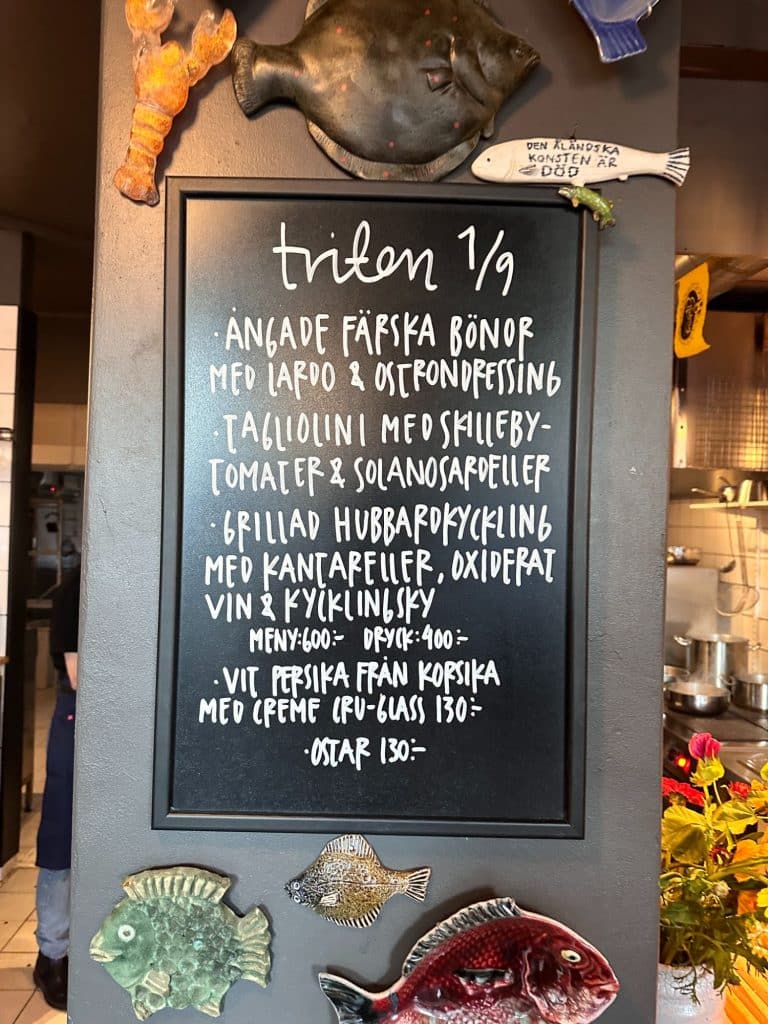 DEN ÅLÄNDSKA
KONSTEN ÄR
DÖD
triten 1/9
·ÅNGADE FÄRSKA BÖNOR
MED LARDO & OSTRONDRESSING
·TAGLIOLINI MED SKILLEBY-
TOMATER & SOLANOSARDELLER
·GRILLAD HUBBARDKYCKLING
MED KANTARELLER, OXIDERAT
VIN & KYCKLINGSKY
MENY:600:- DRYCK:400:-
·VIT PERSIKA FRÅN KORSIKA
MED CREME CRU-GLASS 130:-
·OSTAR 130:-